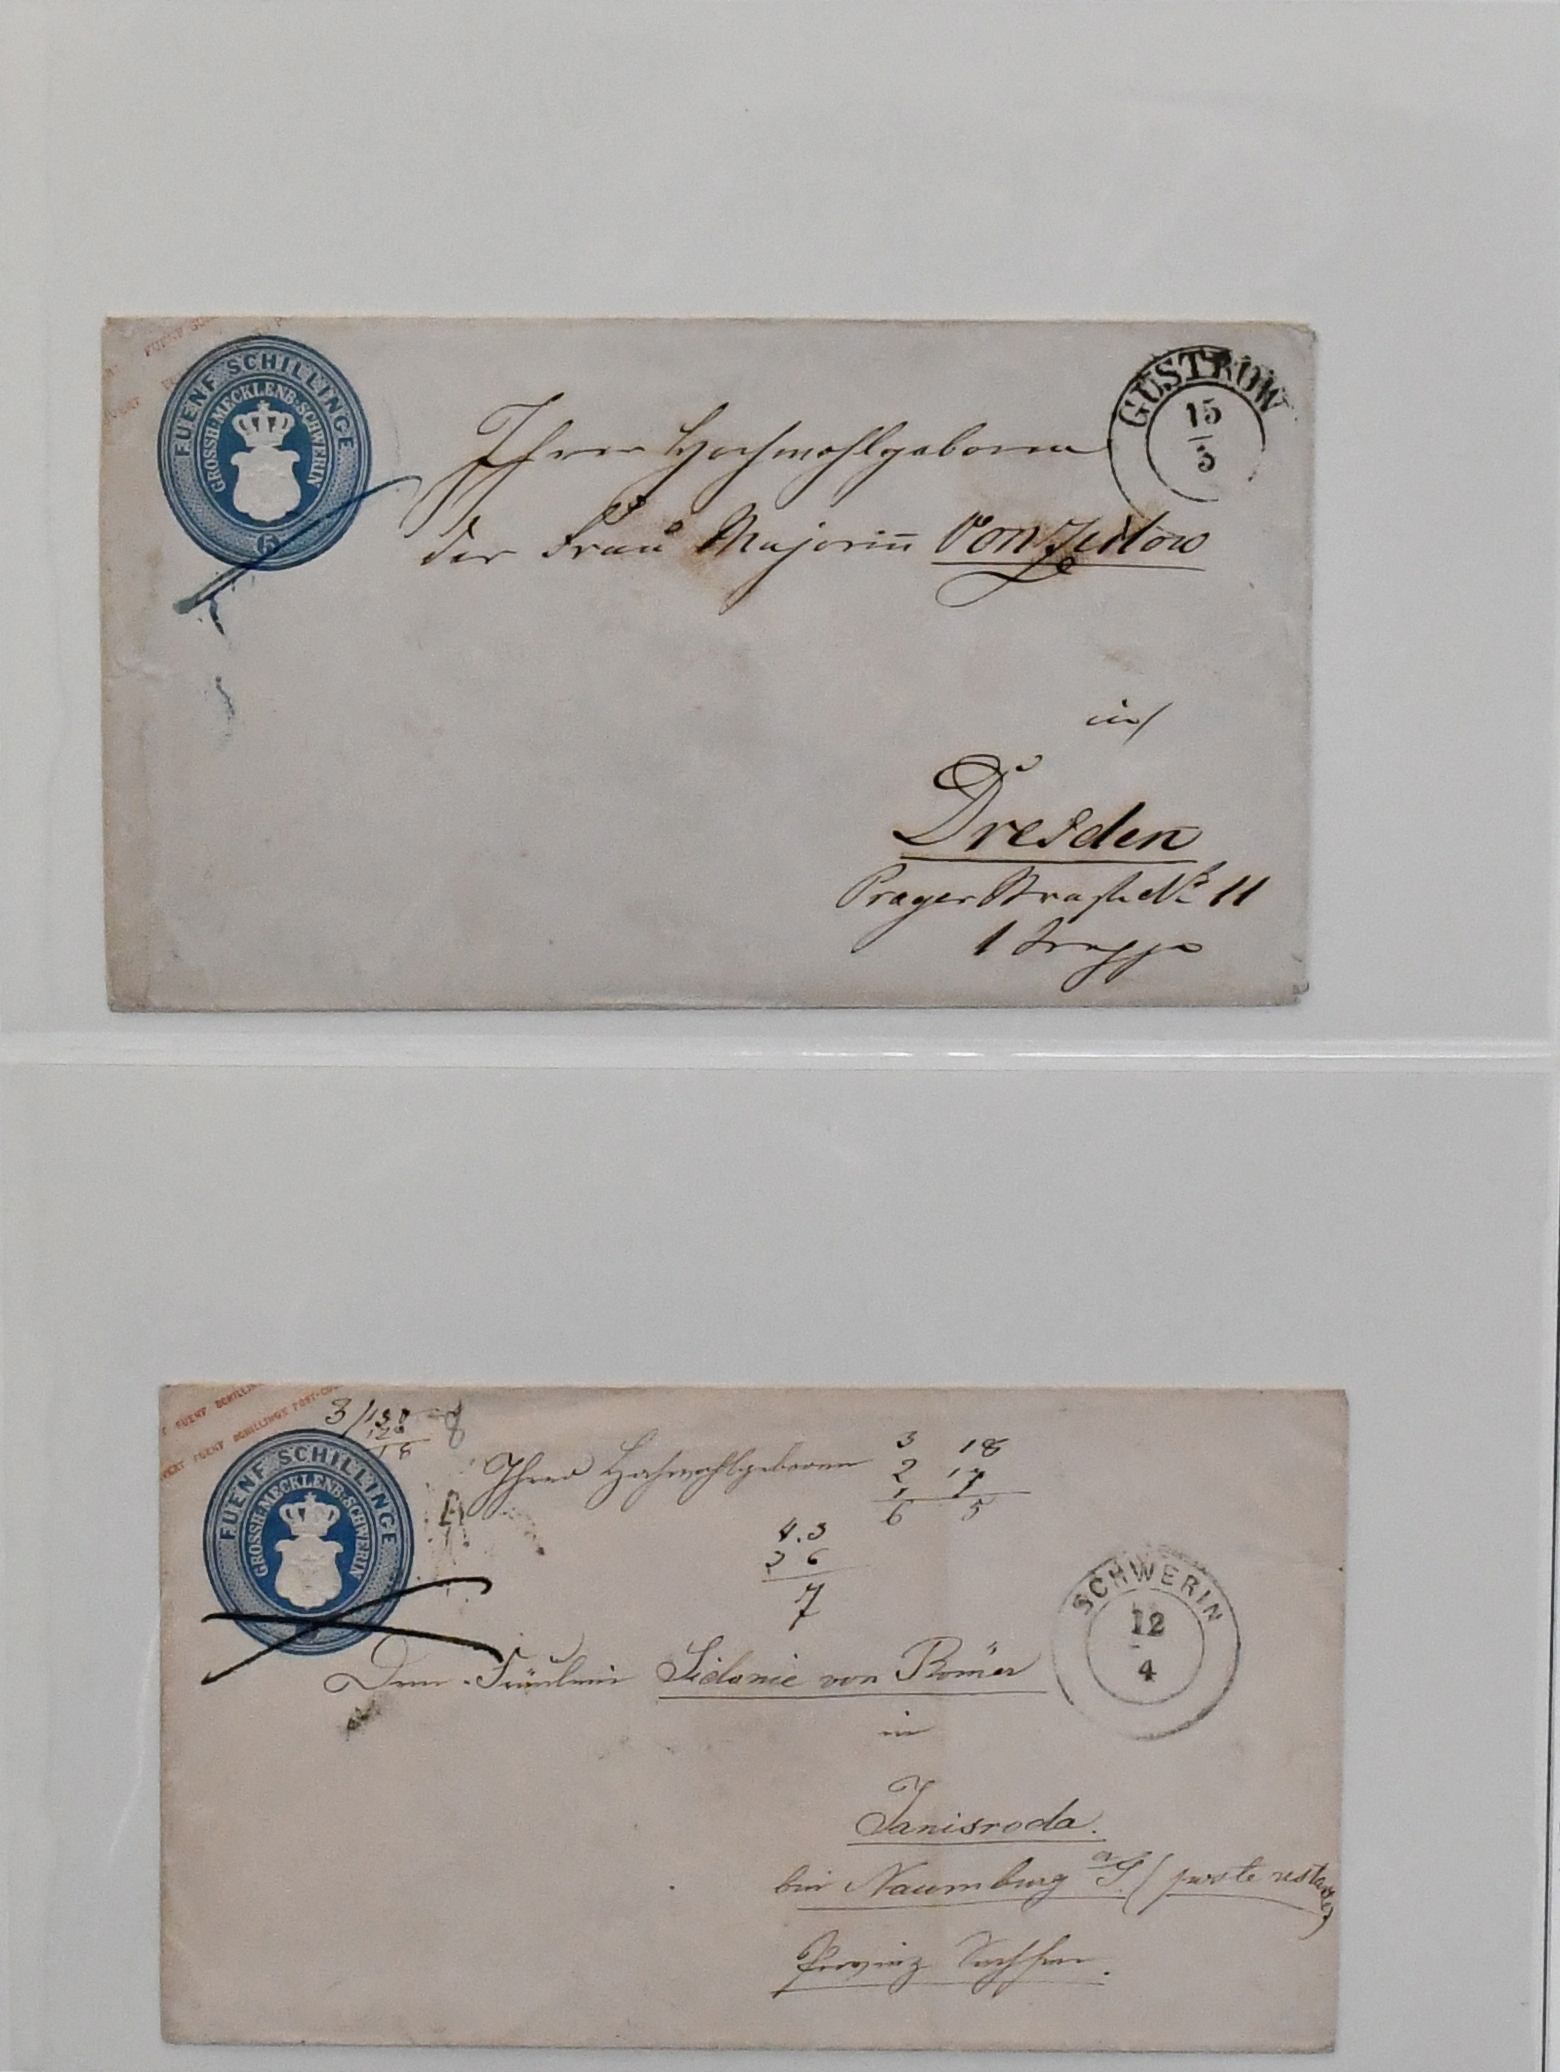 FUENF SCHILLINGE
GROSSH. MECKLENB. SCHWERIN
5
GÜSTROW
15
3
Ihrer Hochwohlgeboren
der Frau Majorin von
in
Dresden
Prager Straße No 11
1 Treppe
FUENF SCHILLINGE POST-COU
3/130
120
18
8
FUENF SCHILLINGE
GROSSH. MECKLENB. SCHWERIN
Ihrer Hochwohlgeboren
3 18
2 17
1
6 5
4.3
3 6
7
SCHWERIN
12
4
Dem Fräulein Sidonie von Römer
in
Janisroda.
bei Naumburg a/S. (poste restante)
Provinz Sachsen.